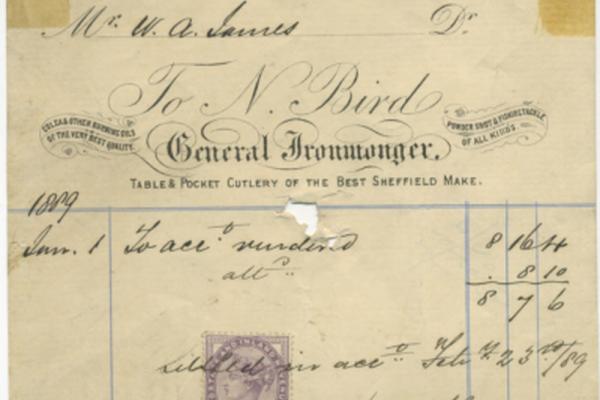 Mr. W. A. James Dr.
To N. Bird
COLZA & OTHER BURNING OILS
OF THE VERY BEST QUALITY.
General Ironmonger.
POWDER SHOT & FISHING TACKLE
OF ALL KINDS.
TABLE & POCKET CUTLERY OF THE BEST SHEFFIELD MAKE.
1889
Jan. 1 To acct. rendered 8 16 4
. 8 10
8 7 6
Settled in acct Feby 23rd/89